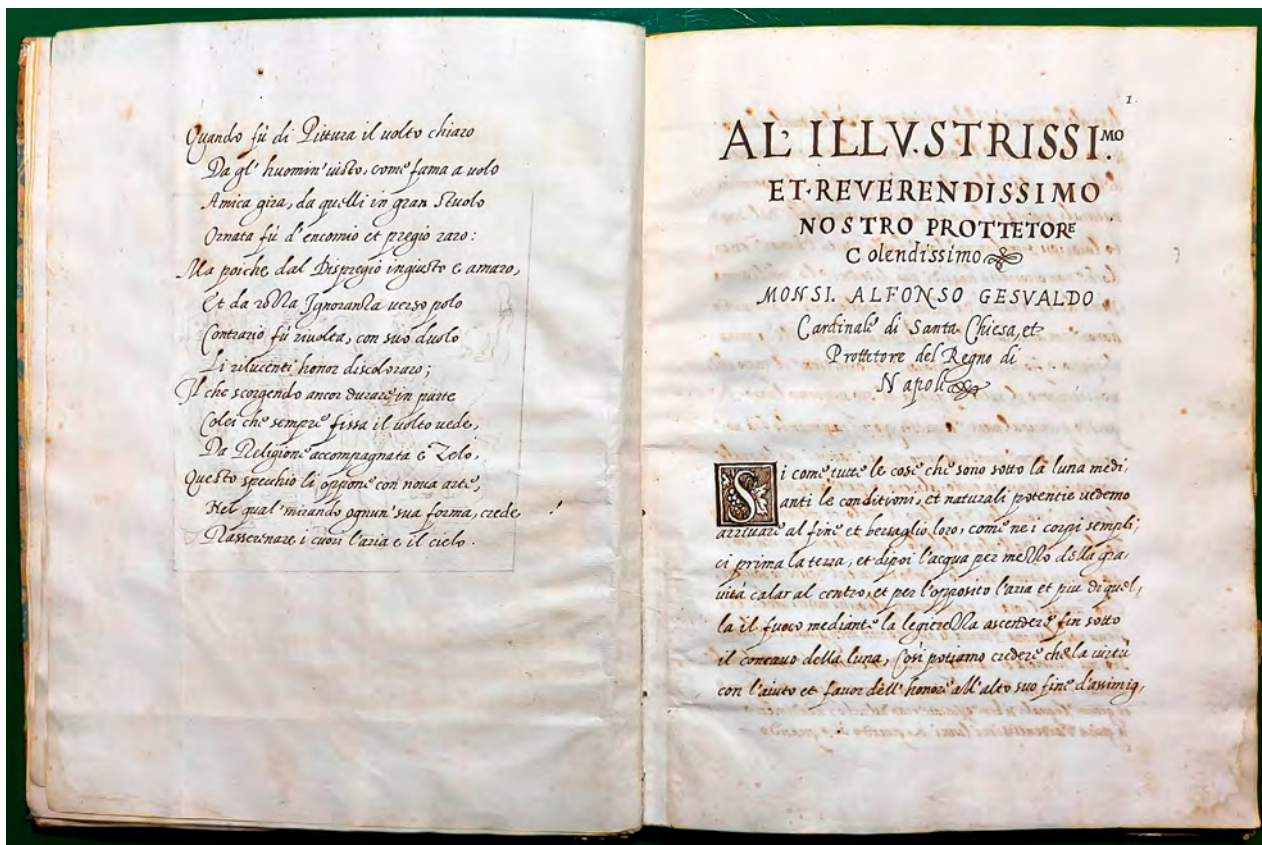 Quando fú di Pittura il uolto chiaro
Da gl' huomin' uisto, come fama a uolo
Amica gira, da quelli in gran Stuolo
Ornata fú d'encomio et pregio raro:
Ma poiche dal Dispregio ingiusto e amaro,
Et da roZZa IgnoranZa uerso polo
Contrario fú riuolta, con suo duolo
Li rilucenti honor discoloraro;
Il che scorgendo ancor durare in parte
Colei che sempre fissa il uolto uede,
Da Religione accompagnata e Zelo,
Questo specchio li oppone con noua arte,
Nel qual' mirando ognun' sua forma, crede
Rasserenare i cuori l'aria e il cielo.
1.
AL' ILLV.STRISSI.MO
ET·REVERENDISSIMO
NOSTRO PROTTETORE
Colendissimo
MONSI. ALFONSO GESVALDO
Cardinale di Santa Chiesa, et
Prottetore del Regno di
Napoli
Si come tutte le cose che sono sotto la luna medi,
anti le conditioni, et naturali potentie uedemo
arriuare al fine et bersaglio loro, come ne i corpi sempli,
ci prima la terra, et dipoi l'acqua per meZZo della gra,
uitá calar al centro, et per l'opposito l'aria et piu di quel,
la il fuoco mediante la legiereZZa ascendere fin sotto
il concauo della luna, Cosi potiamo credere che la uirtú
con l'aiuto et fauor dell' honore all'alto suo fine d'assimig,